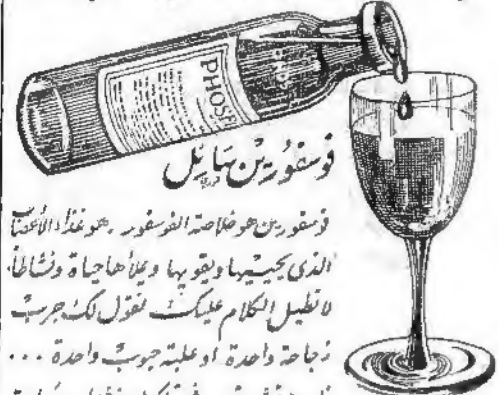 PHOSP
فوسفورين هائل
فوسفورين هو خلاصة الفوسفور. هو غذاء الأعصاب
الذى يحييها ويقويها ويملأها حياة ونشاطاً
لا نطيل الكلام عليك نقول لك جرب
زجاجة واحدة او علبة حبوب واحدة ...